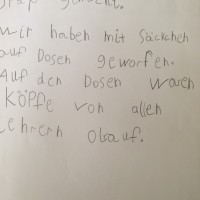 Spaß gemacht.
Wir haben mit Säckchen
auf Dosen geworfen.
Auf den Dosen waren
Köpfe von allen
Lehrern obauf.